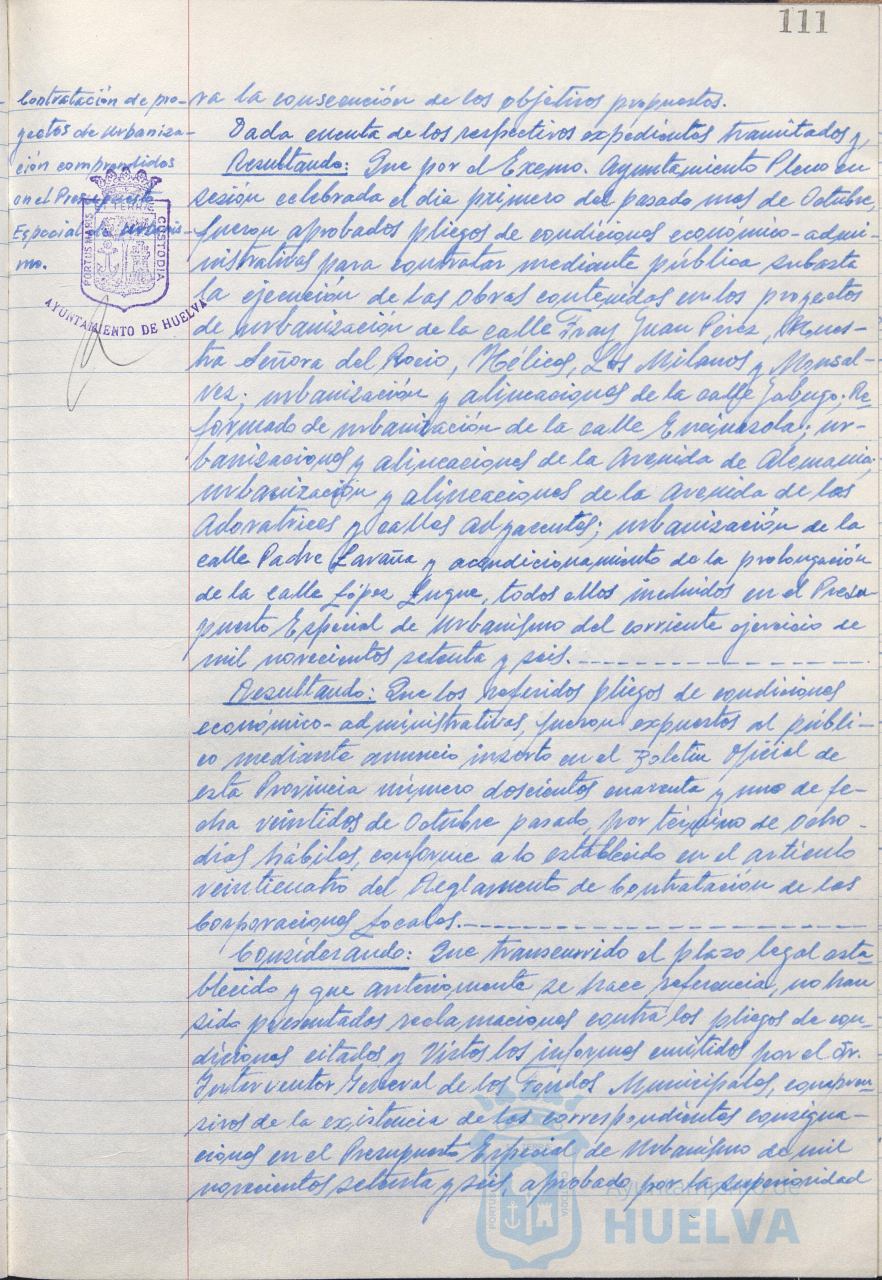 111
Contratación de pro-
yectos de urbaniza-
ción comprendidos
en el Presupuesto
Especial de Urbanis-
mo.
PORTUS MARIS
ET TERRÆ
CUSTODIA
AYUNTAMIENTO DE HUELVA
ra la consecución de los objetivos propuestos.
Dada cuenta de los respectivos expedientes tramitados y,
Resultando: Que por el Excmo. Ayuntamiento Pleno en
sesión celebrada el día primero del pasado mes de Octubre,
fueron aprobados pliegos de condiciones económico-admi-
nistrativas para contratar mediante pública subasta
la ejecución de las obras contenidas en los proyectos
de urbanización de la calle Fray Juan Pérez, Nues-
tra Señora del Rocío, Hélice, Los Milanos y Monsal-
vez; urbanización y alineaciones de la calle Jabugo; Re-
formado de urbanización de la calle Encinasola; ur-
banizaciones y alineaciones de la Avenida de Alemania;
urbanización y alineaciones de la Avenida de las
Adoratrices y calles adyacentes; urbanización de la
calle Padre Laraña y acondicionamiento de la prolongación
de la calle López Luque, todos ellos incluidos en el Presu-
puesto Especial de Urbanismo del corriente ejercicio de
mil novecientos setenta y seis.
Resultando: Que los referidos pliegos de condiciones
económico-administrativas, fueron expuestos al públi-
co mediante anuncio inserto en el Boletín Oficial de
esta Provincia número doscientos cuarenta y uno de fe-
cha veintidos de Octubre pasado, por término de ocho
días hábiles, conforme a lo establecido en el artículo
veinticuatro del Reglamento de Contratación de las
Corporaciones Locales.
Considerando: Que transcurrido el plazo legal esta-
blecido y que anteriormente se hace referencia, no han
sido presentados reclamaciones contra los pliegos de con-
diciones citados y Vistos los informes emitidos por el Sr.
Interventor General de los Fondos Municipales, compren-
sivos de la existencia de las correspondientes consigna-
ciones en el Presupuesto Especial de Urbanismo de mil
novecientos setenta y seis, aprobado por la superioridad
PORTUS MARIS
CUSTODIA
Ayuntamiento de
HUELVA